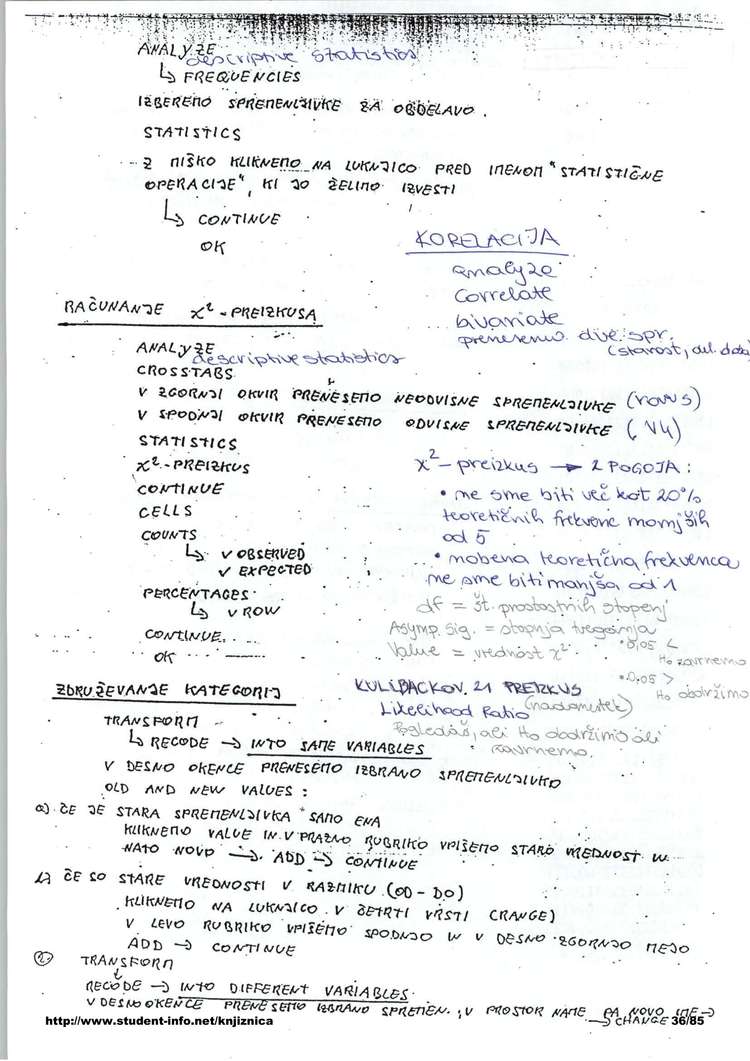 ANALYZE
descriptive statistics
↳ FREQUENCIES
IZBEREMO SPREMENLJIVKE ZA OBDELAVO.
STATISTICS
Z MIŠKO KLIKNEMO NA LUKNJICO PRED IMENOM "STATISTIČNE
OPERACIJE", KI JO ŽELIMO IZVESTI
↳ CONTINUE
OK
KORELACIJA
analyze
Correlate
bivariate
prenesemo dve spr.
(starost, del. doba)
RAČUNANJE χ²-PREIZKUSA
ANALYZE
descriptive statistics
CROSSTABS
V ZGORNJI OKVIR PRENESEMO NEODVISNE SPREMENLJIVKE
V SPODNJI OKVIR PRENESEMO ODVISNE SPREMENLJIVKE (V4)
STATISTICS
χ²-PREIZKUS
CONTINUE
CELLS
COUNTS
↳ v OBSERVED
v EXPECTED
PERCENTAGES
↳ v ROW
CONTINUE
OK
χ²-preizkus → 2 POGOJA:
• ne sme biti več kot 20%
teoretičnih frekvenc manjših
od 5
• nobena teoretična frekvenca
ne sme biti manjša od 1
df = št. prostostnih stopenj
Asymp. Sig. = stopnja tveganja
Value = vrednost χ²
• 0,05 <
Ho zavrnemo
• 0,05 >
Ho obdržimo
KULLBACKOV 2I PREIZKUS
Likelihood Ratio (nadomestek)
Pogledaš, ali Ho obdržimo ali
zavrnemo.
ZDRUŽEVANJE KATEGORIJ
TRANSFORM
↳ RECODE → INTO SAME VARIABLES
V DESNO OKENCE PRENESEMO IZBRANO SPREMENLJIVKO
OLD AND NEW VALUES:
a) ČE JE STARA SPREMENLJIVKA SAMO ENA
KLIKNEMO VALUE IN V PRAZNO RUBRIKO VPIŠEMO STARO VREDNOST IN
NATO NOVO → ADD → CONTINUE
b) ČE SO STARE VREDNOSTI V RAZMIKU (OD-DO)
KLIKNEMO NA LUKNJICO V ČETRTI VRSTI (RANGE)
V LEVO RUBRIKO VPIŠEMO SPODNJO IN V DESNO ZGORNJO MEJO
ADD → CONTINUE
② TRANSFORM
↓
RECODE → INTO DIFFERENT VARIABLES
V DESNO OKENCE PRENESEMO IZBRANO SPREMEN., V PROSTOR NAME PA NOVO IME →
→ CHANGE
http://www.student-info.net/knjiznica
36/85